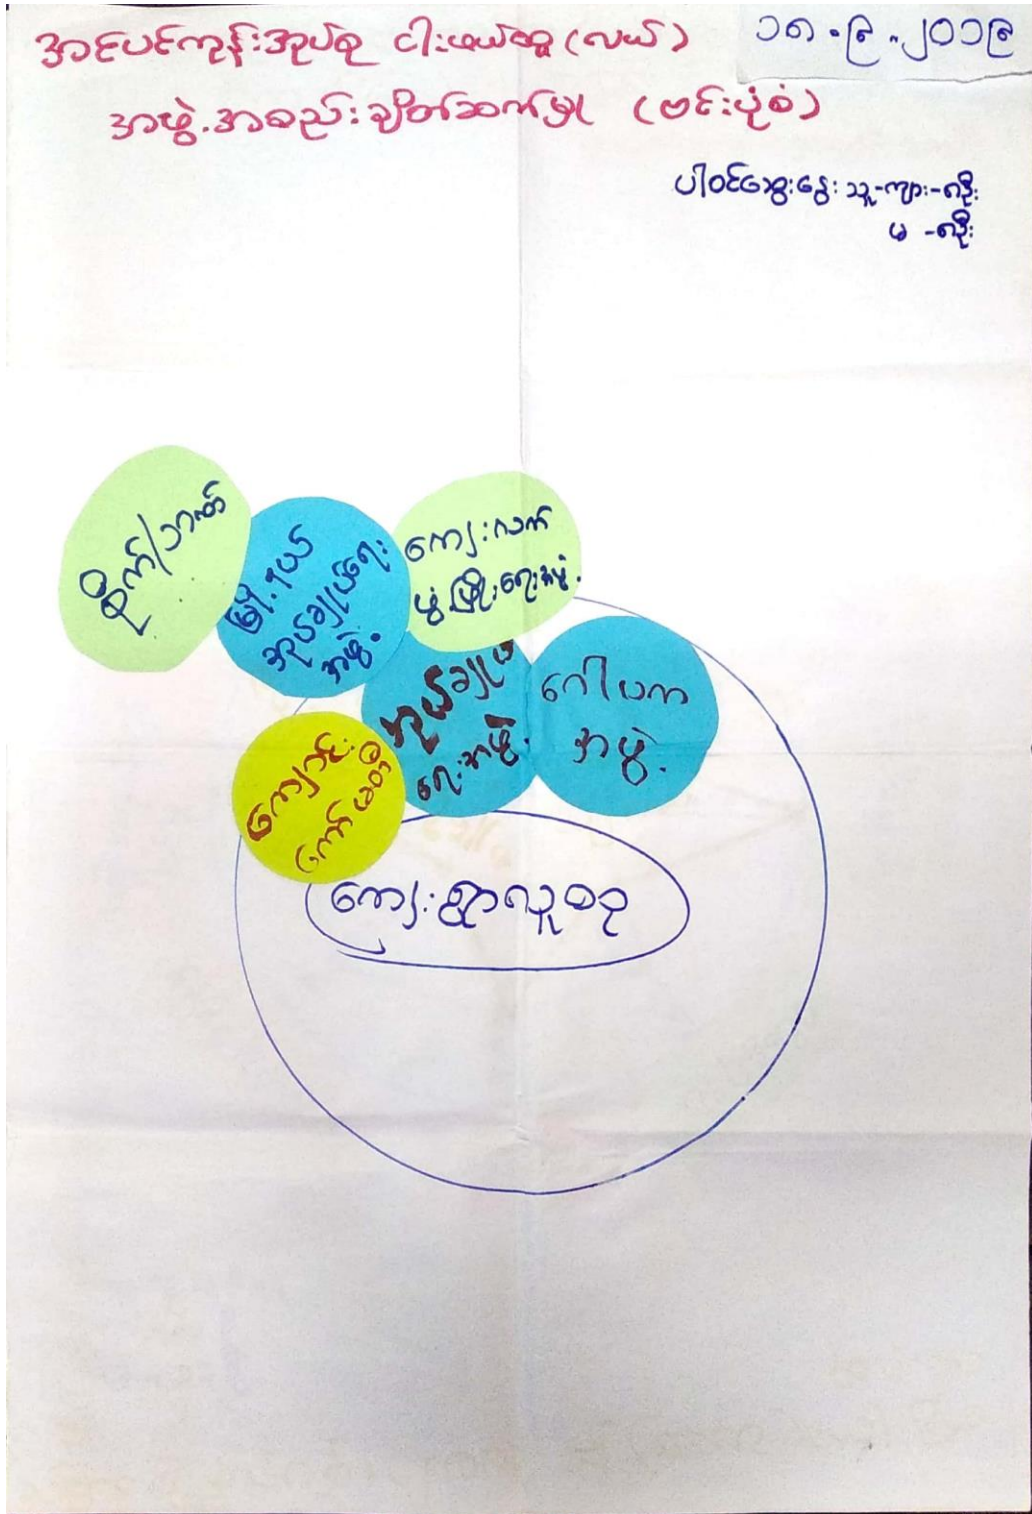 အင်ပင်ကုန်းအုပ်စု ငါးဖယ်ထူ (လယ်)
၁၈.၉.၂၀၁၉
အဖွဲ့အစည်းချိတ်ဆက်မှု (ဗင်းပုံစံ)
ပါဝင်ဆွေးနွေးသူ-ကျား-၈ဦး
မ -၈ဦး
စိုက်/ဘဏ်
မြို့နယ်
အုပ်ချုပ်ရေး
အဖွဲ့
ကျေးလက်
ဖွံ့ဖြိုးရေးအဖွဲ့
အုပ်ချုပ်
ရေးအဖွဲ့
ဂေါပက
အဖွဲ့
ကျောင်း
ကော်မတီ
ကျေးရွာလူထု